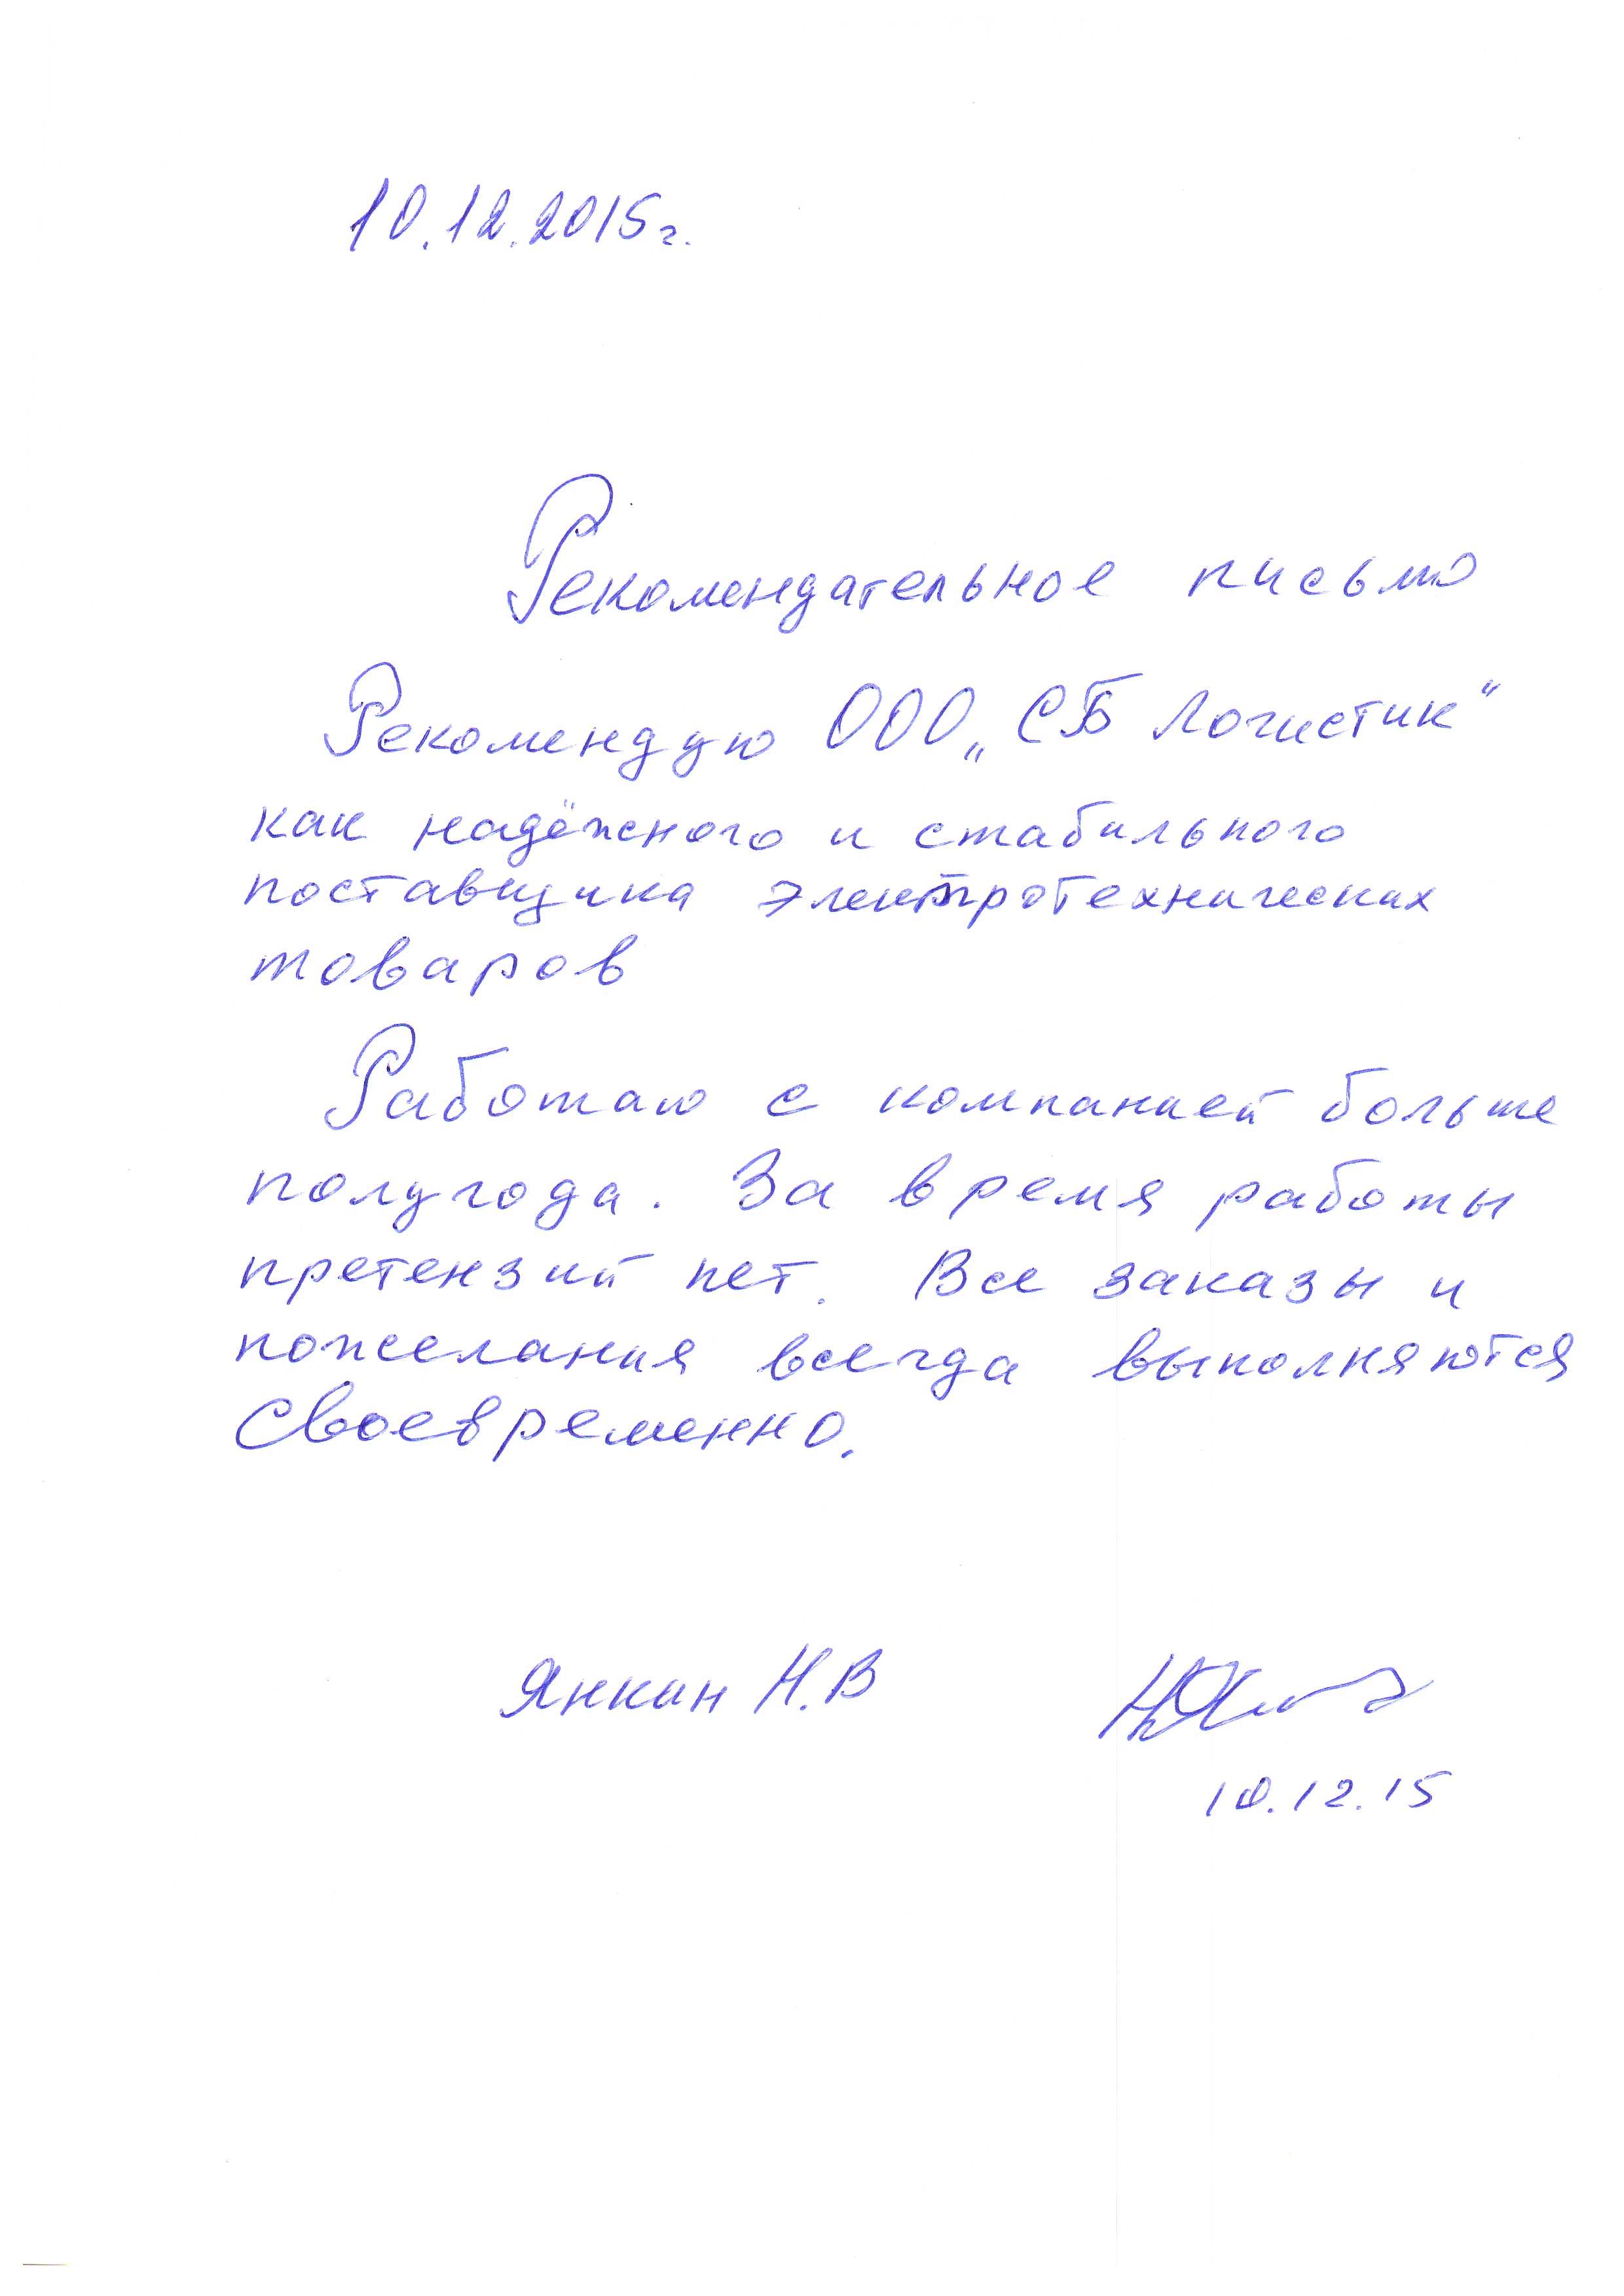 10.12.2015г.
Рекомендательное письмо
Рекомендую ООО „СБ Логистик“
как надёжного и стабильного
поставщика электротехнических
товаров
Работаю с компанией больше
полугода. За время работы
претензий нет. Все заказы и
пожелания всегда выполняются
своевременно.
Янкин Н.В
10.12.15